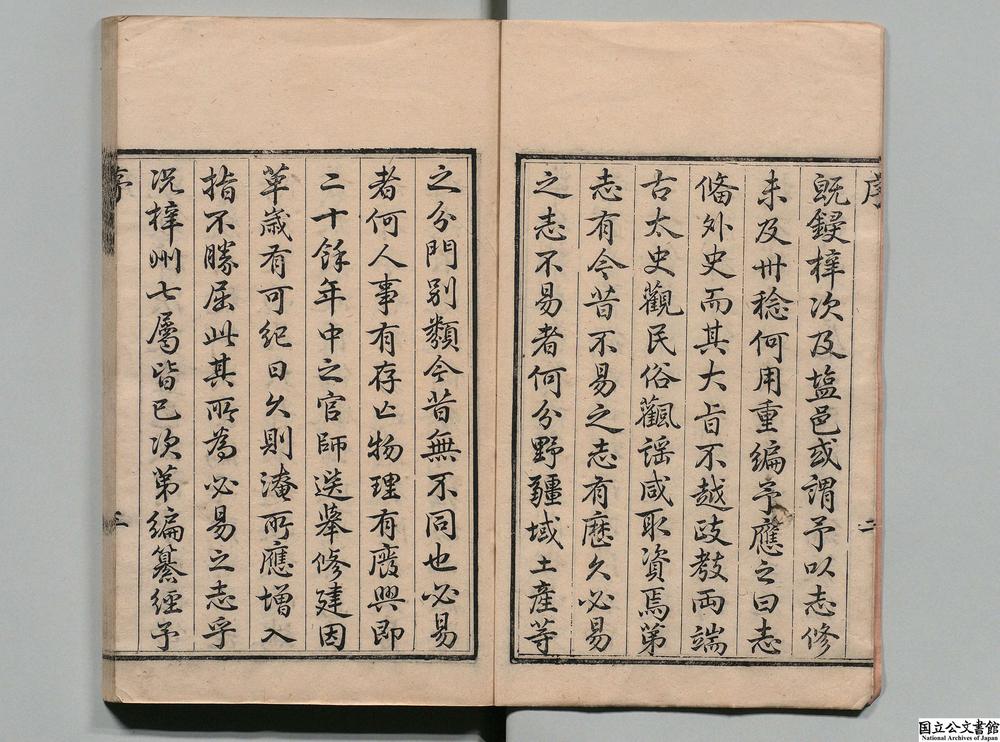 序
二
既鋟梓次及塩邑或謂予以志修
未及卅稔何用重編予應之曰志
俻外史而其大旨不越政教両端
古太史觀民俗觀謡咸取資焉第
志有今昔不易之志有歴久必易
之志不易者何分野疆域土產等
之分門别類今昔無不同也必易
者何人事有存亡物理有廢興即
二十餘年中之官師迭舉修建因
革歳有可紀日久則淹所應增入
指不勝屈此其所為必易之志乎
况梓州七屬皆已次第編纂經予
序
三
国立公文書館
National Archives of Japan